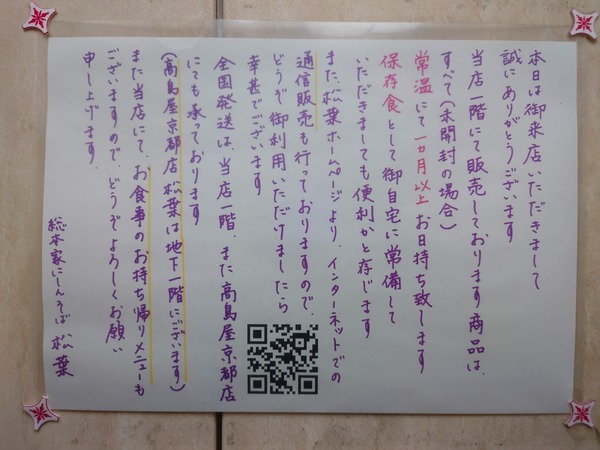 本日は御来店いただきまして
誠にありがとうございます
当店一階にて販売しております商品は、
すべて(未開封の場合)
常温にて一カ月以上お日持ち致します
保存食として御自宅に常備して
いただきましても便利かと存じます
また、松葉ホームページより、インターネットでの
通信販売も行っておりますので、
どうぞ御利用いただけましたら
幸甚でございます
全国発送は、当店一階、また高島屋京都店
にても承っております
(高島屋京都店 松葉は地下一階にございます)
また当店にて、お食事のお持ち帰りメニューも
ございますので、どうぞよろしくお願い
申し上げます、
総本家にしんそば 松葉